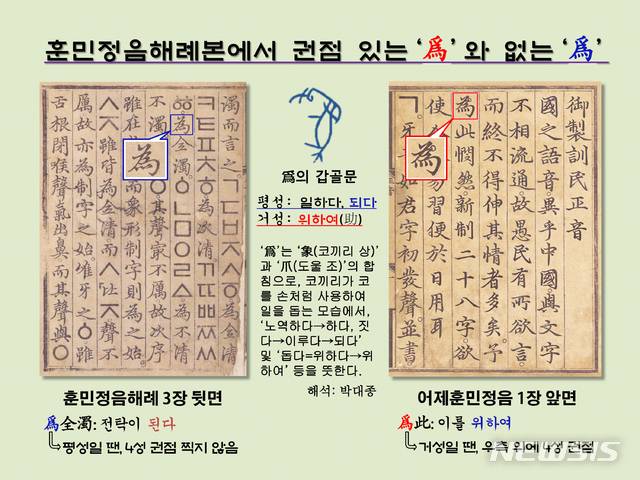 훈민정음해례본에서 권점 있는 ‘爲’ 와 없는 ‘爲’
濁而言之ㄱㄷㅂㅈㅅㆆ爲全淸
ㅋㅌㅍㅊㅎ爲次淸ㄲㄸㅃㅉㅆ
ㆅ爲全濁ㆁㄴㅁㅇㄹㅿ爲不淸
不濁ㄴㅁㅇ其聲㝡不厲故次序
雖在 而象形制字則爲之始
ㅅㅈ雖皆爲全淸而ㅅ比ㅈ聲不
厲故亦爲制字之始唯牙之ㆁ雖
舌根閉喉聲氣出鼻而其聲與ㅇ
爲
爲의 갑골문
평성: 일하다, 되다
거성: 위하여(助)
‘爲’는 ‘象(코끼리 상)’
과 ‘爪(도울 조)’의 합
침으로, 코끼리가 코
를 손처럼 사용하여
일을 돕는 모습에서,
‘노역하다→하다, 짓
다→이루다→되다’
및 ‘돕다=위하다→위
하여’ 등을 뜻한다.
해석: 박대종
御製訓民正音
國之語音異乎中國與文字
不相流通故愚民有所欲言
而終不得伸其情者多矣予
爲此憫然新制二十八字欲
使 易習便於日用耳
ㄱ牙 如君字初發聲並書
爲
훈민정음해례 3장 뒷면
爲全濁: 전탁이 된다
평성일 땐, 4성 권점 찍지 않음
어제훈민정음 1장 앞면
爲此: 이를 위하여
거성일 땐, 우측 위에 4성 권점
NEWSIS